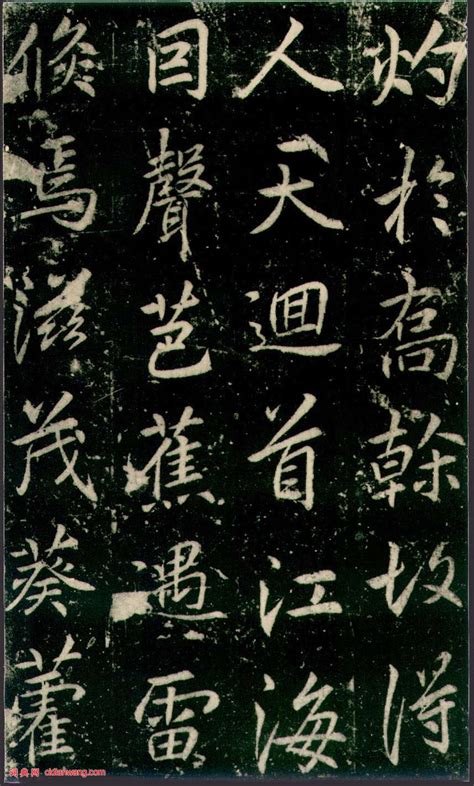 灼於髙榦故得
人天迴首江海
囙聲芭蕉遇雷
倐焉滋茂葵藿
词典网:cidianwang.com